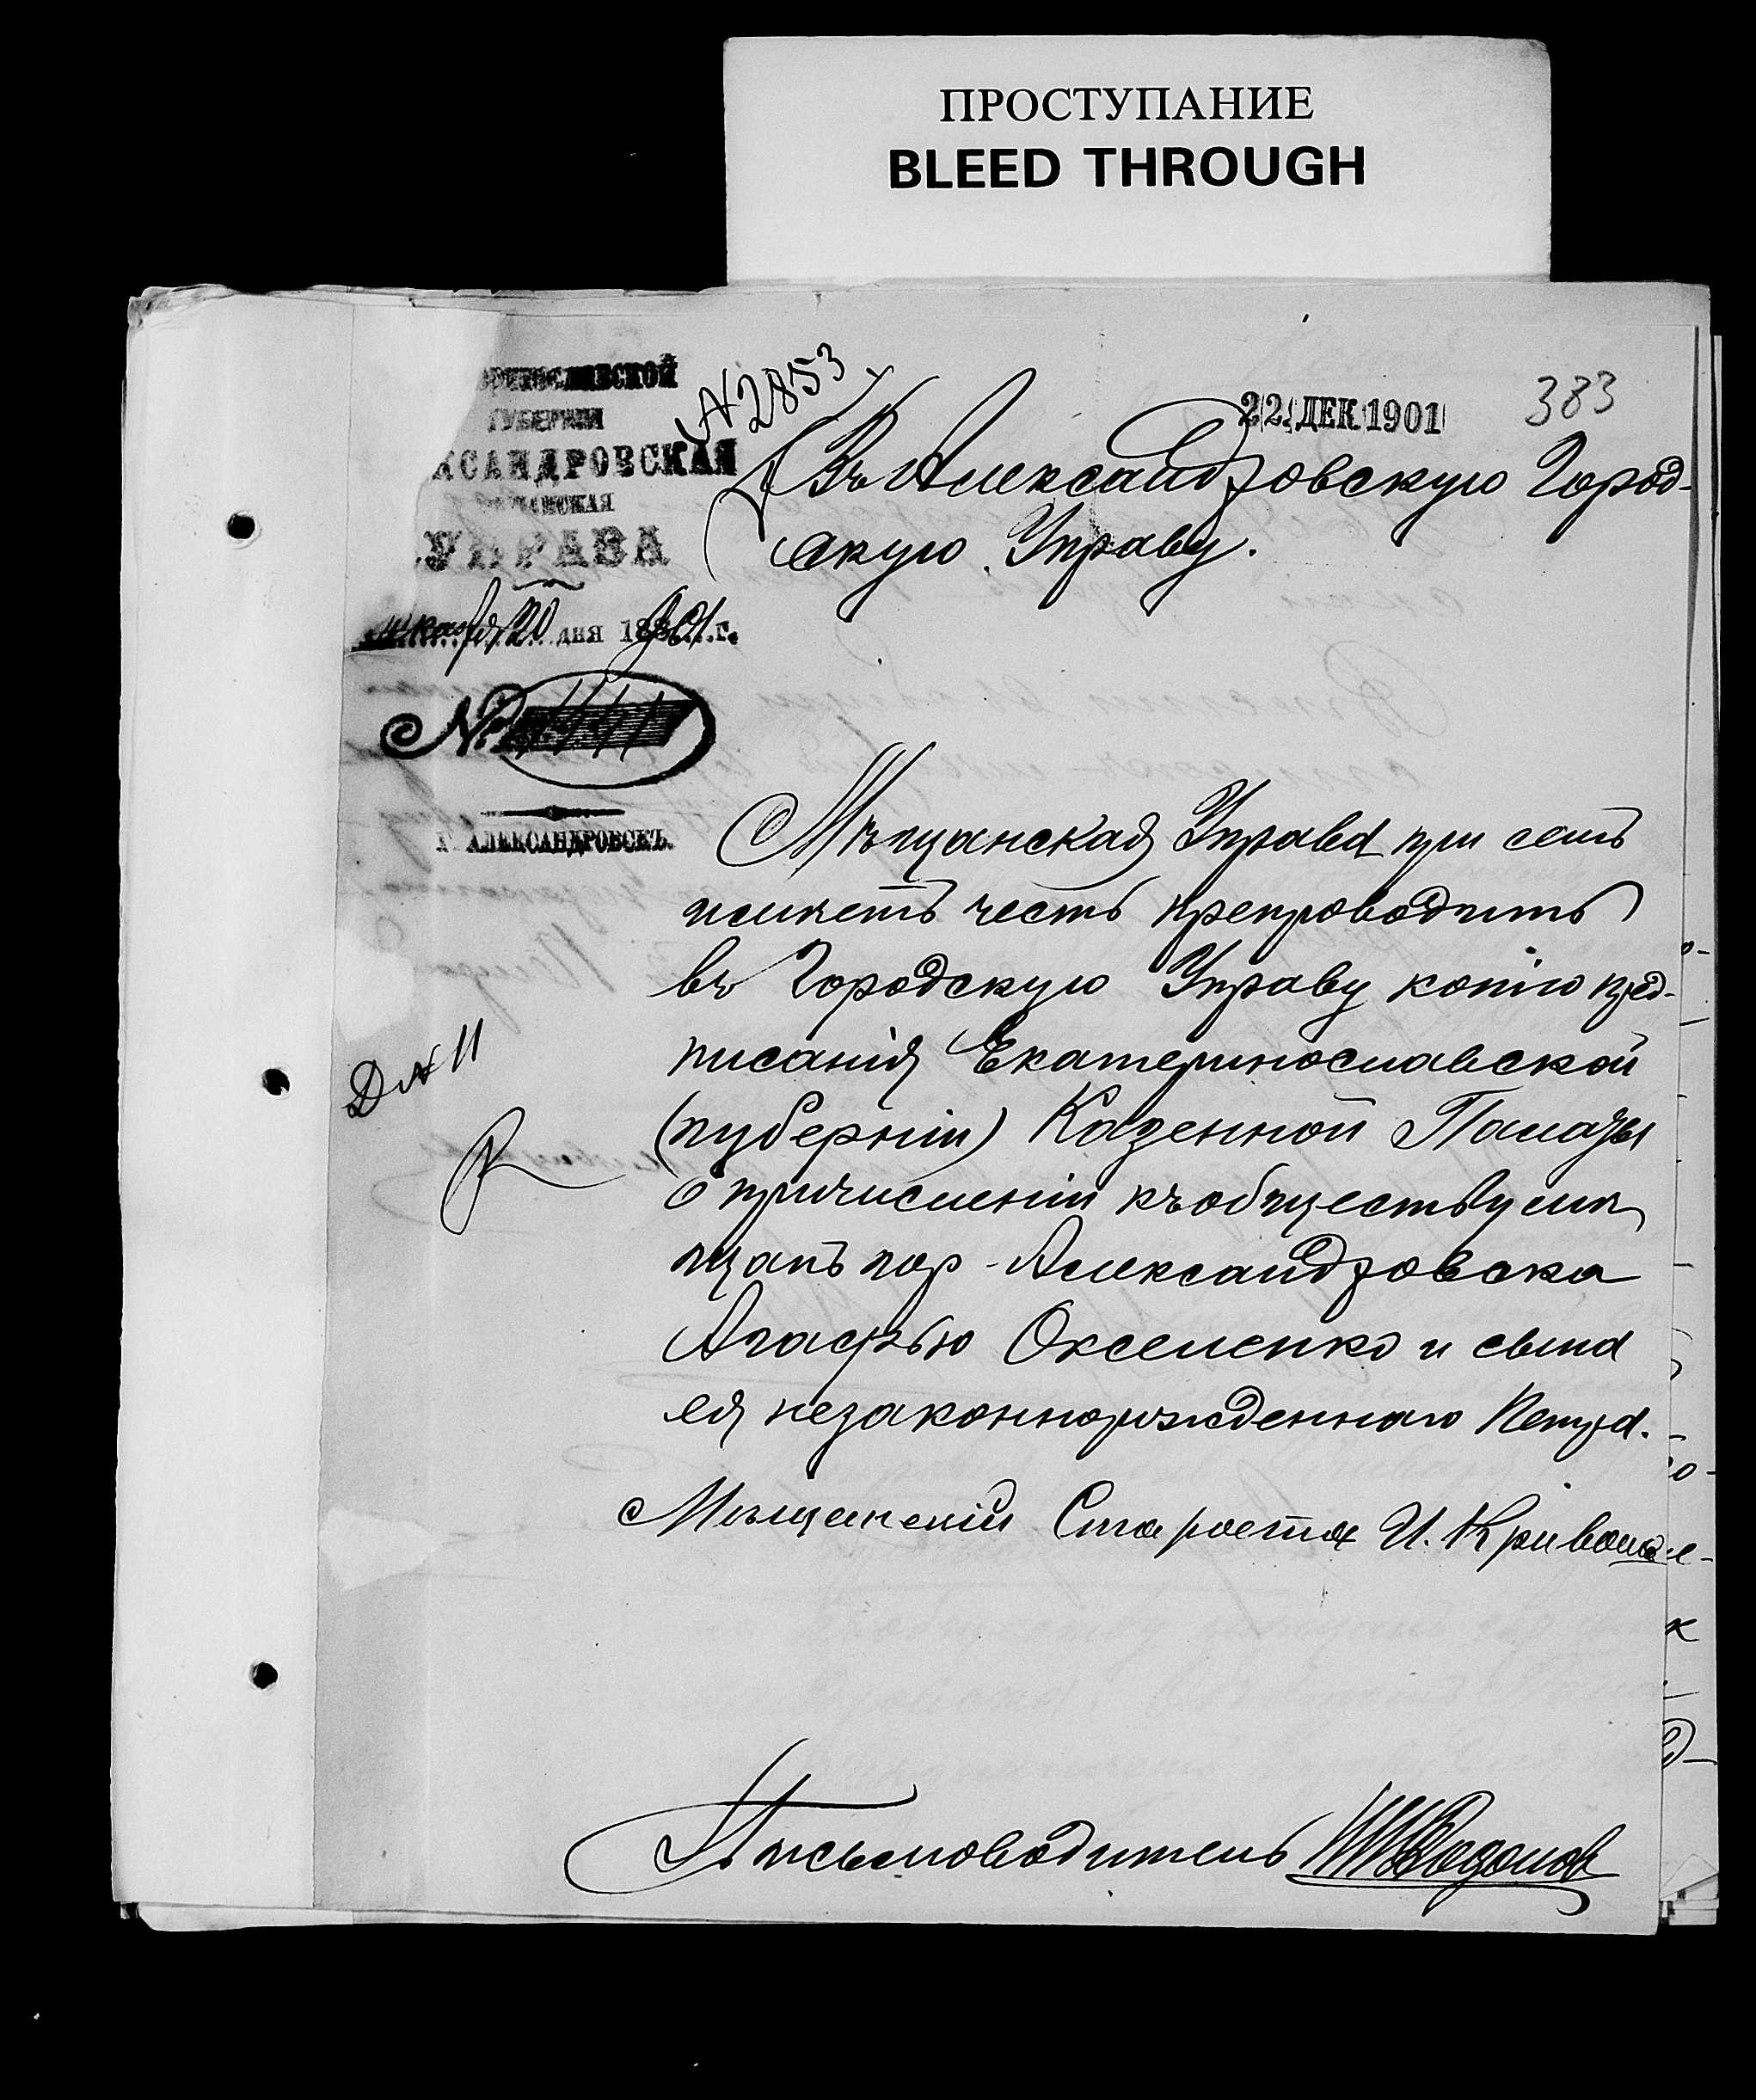 ПРОСТУПАНИЕ
BLEED THROUGH
ГУБЕРНІИ
КСАНДРОВСКАЯ
УПРАВА
20 дня 1901 г.
№
Г. АЛЕКСАНДРОВСКЪ.
№ 2853
22 ДЕК 1901
383
Въ Александровскую Город-
скую Управу.
Мѣщанская Управа при семъ
имѣетъ честь препроводить
въ Городскую Управу копію пред-
писанія Екатеринославской
(губерніи) Казенной Палаты
о причисленіи къ обществу мѣ
щанъ гор. Александровска
Агафью Окселенко и сына
ея незаконнорожденнаго Петра.
Д № 11
Мѣщанскій Староста И.
Письмоводитель